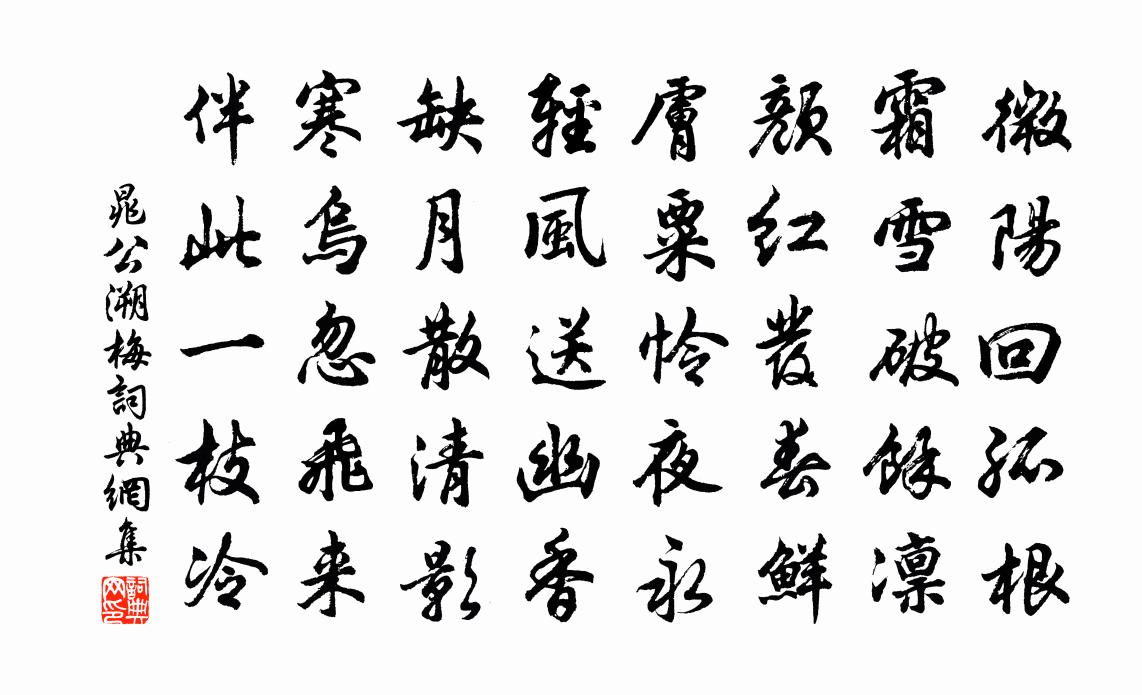 微陽回孤根
霜雪破餘凛
顏紅發春鮮
膚粟怜夜永
輕風送幽香
缺月散清影
寒烏忽飛来
伴此一枝冷
晁公溯梅詞典網集
詞典网印